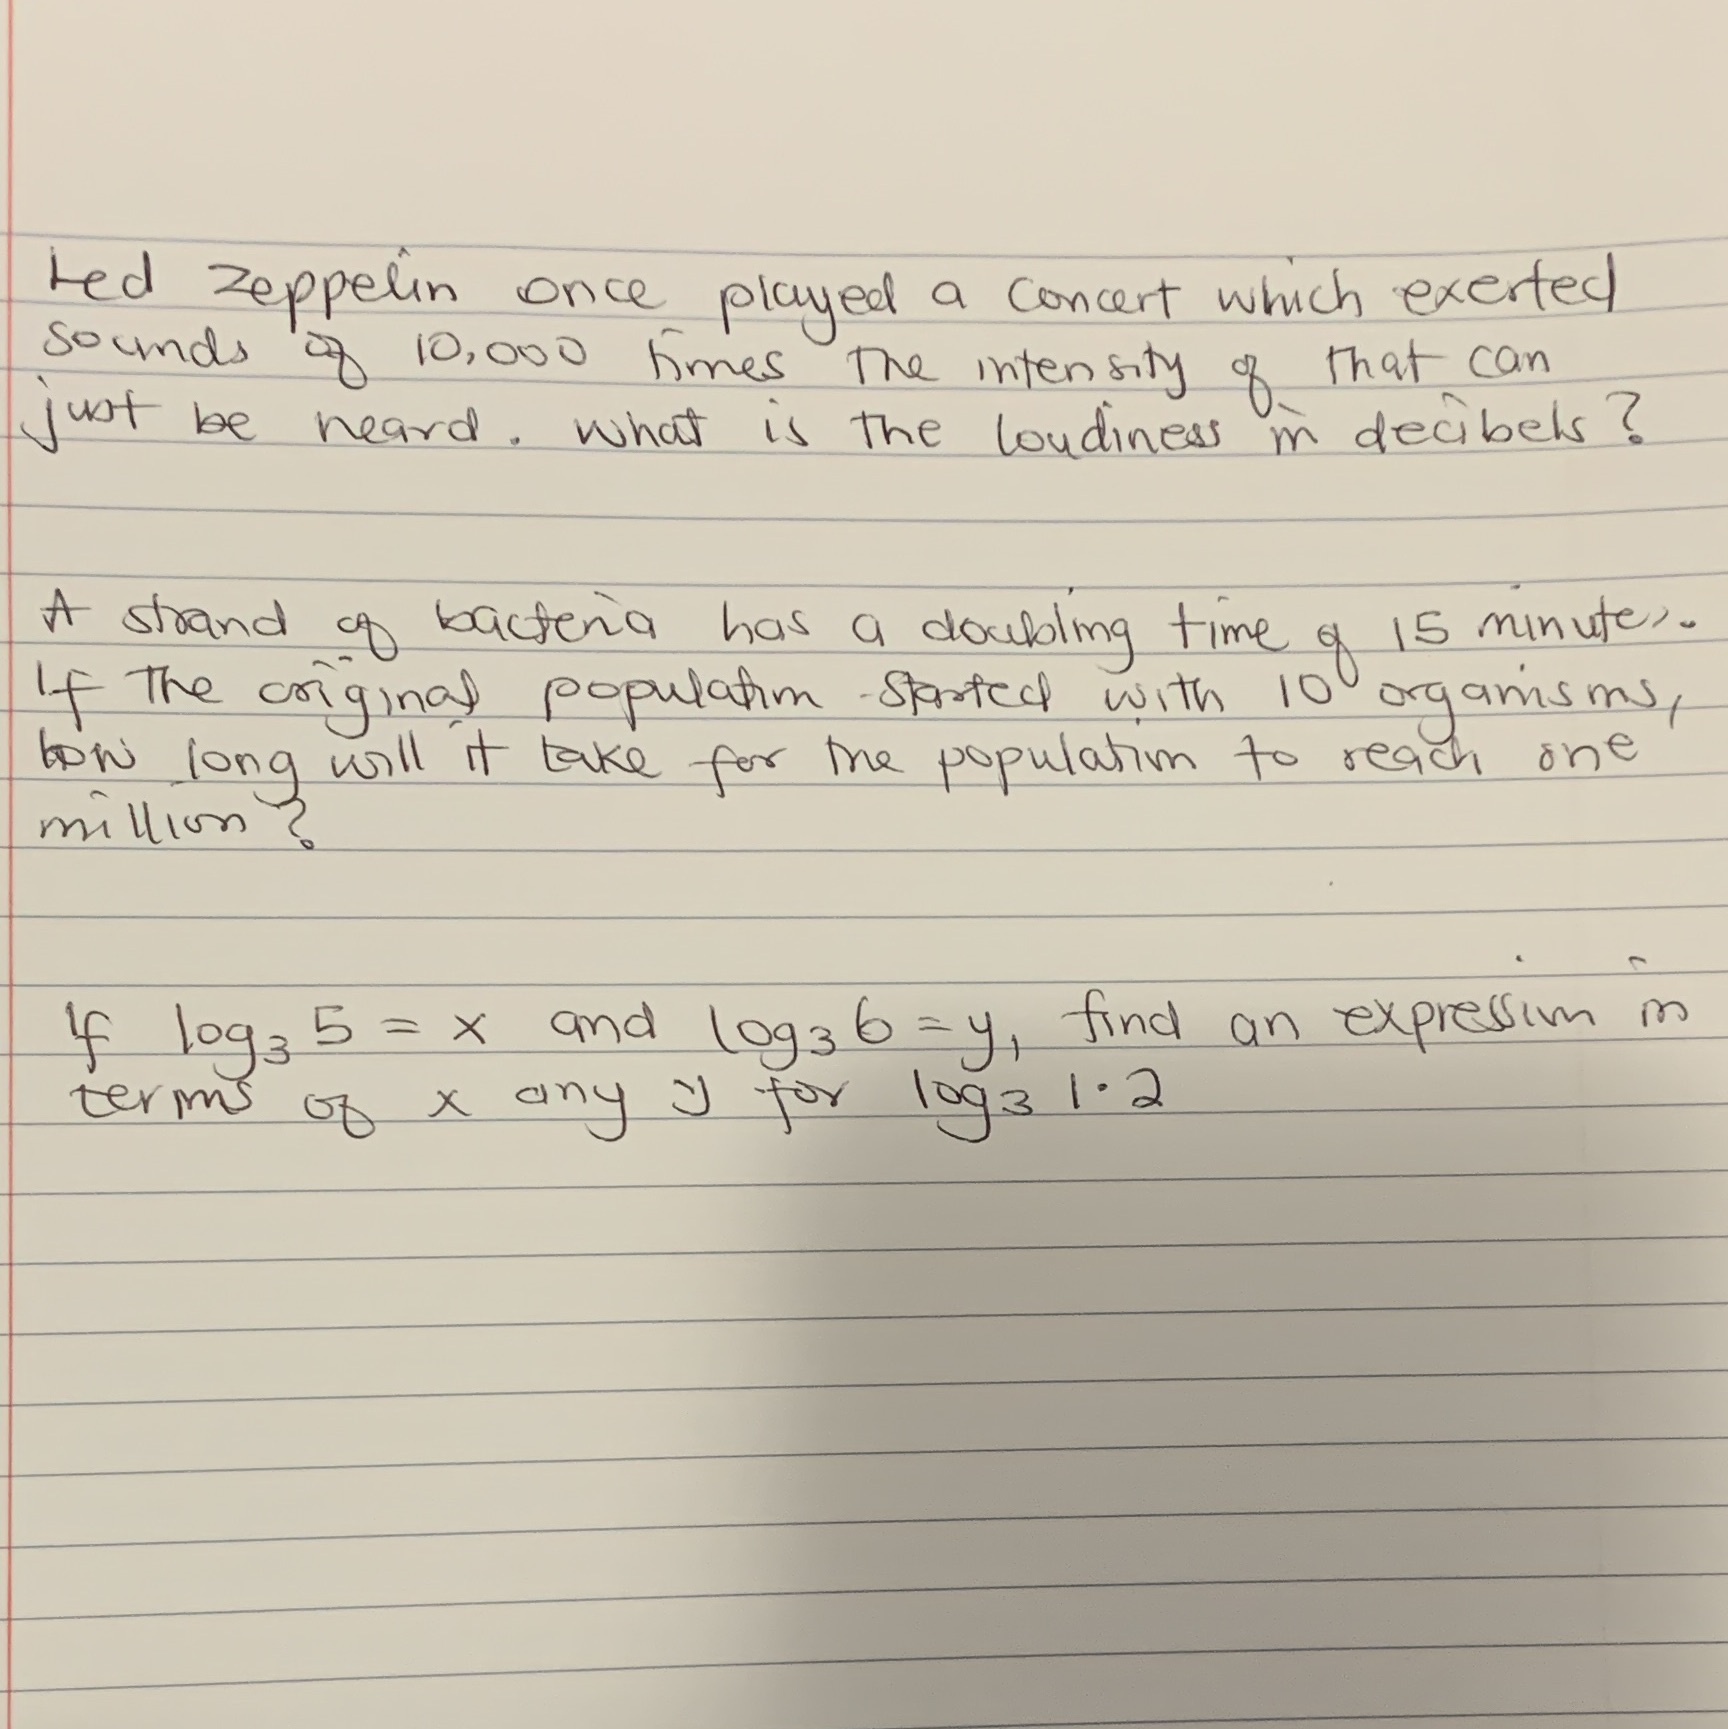 Led Zeppelin once played a concert which exerted
sounds of 10,000 times the intensity of that can
just be heard. What is the loudiness in decibels?
A strand of bacteria has a doubling time of 15 minutes.
If the original population started with 10 organisms,
how long will it take for the population to reach one
million?
If log₃ 5 = x and log₃ 6 = y, find an expression in
terms of x any y for log₃ 1.2